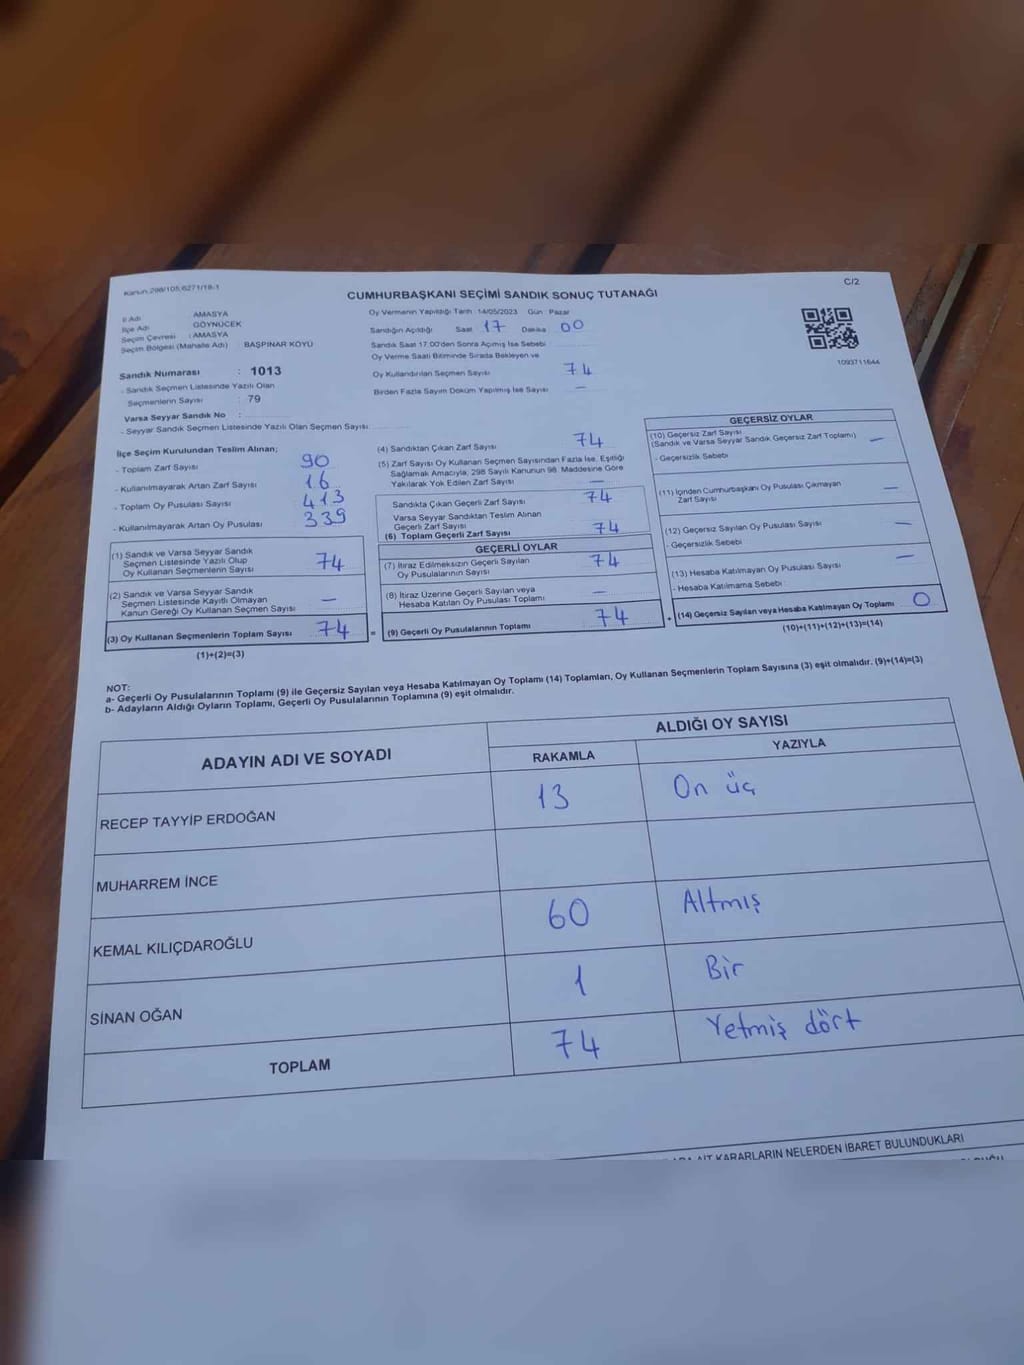 Kanun:298/105,6271/18-1
C/2
CUMHURBAŞKANI SEÇİMİ SANDIK SONUÇ TUTANAĞI
İl Adı AMASYA
İlçe Adı GÖYNÜCEK
Seçim Çevresi : AMASYA
Seçim Bölgesi (Mahalle Adı) BAŞPINAR KÖYÜ
Sandık Numarası : 1013
- Sandık Seçmen Listesinde Yazılı Olan
Seçmenlerin Sayısı : 79
Varsa Seyyar Sandık No :
- Seyyar Sandık Seçmen Listesinde Yazılı Olan Seçmen Sayısı
Oy Vermenin Yapıldığı Tarih : 14/05/2023 Gün : Pazar
Sandığın Açıldığı Saat 17 Dakika 00
Sandık Saat 17.00'den Sonra Açılmış İse Sebebi
Oy Verme Saati Bitiminde Sırada Bekleyen ve
Oy Kullandırılan Seçmen Sayısı 74
Birden Fazla Sayım Döküm Yapılmış İse Sayısı —
1093711644
İlçe Seçim Kurulundan Teslim Alınan;
- Toplam Zarf Sayısı 90
- Kullanılmayarak Artan Zarf Sayısı 16
- Toplam Oy Pusulası Sayısı 413
- Kullanılmayarak Artan Oy Pusulası 339
(1) Sandık ve Varsa Seyyar Sandık
Seçmen Listesinde Yazılı Olup
Oy Kullanan Seçmenlerin Sayısı 74
(2) Sandık ve Varsa Seyyar Sandık
Seçmen Listesinde Kayıtlı Olmayan
Kanun Gereği Oy Kullanan Seçmen Sayısı —
(3) Oy Kullanan Seçmenlerin Toplam Sayısı 74
(1)+(2)=(3)
(4) Sandıktan Çıkan Zarf Sayısı 74
(5) Zarf Sayısı Oy Kullanan Seçmen Sayısından Fazla İse, Eşitliği
Sağlamak Amacıyla, 298 Sayılı Kanunun 98. Maddesine Göre
Yakılarak Yok Edilen Zarf Sayısı —
Sandıkta Çıkan Geçerli Zarf Sayısı 74
Varsa Seyyar Sandıktan Teslim Alınan
Geçerli Zarf Sayısı
(6) Toplam Geçerli Zarf Sayısı 74
GEÇERLİ OYLAR
(7) İtiraz Edilmeksizin Geçerli Sayılan
Oy Pusulalarının Sayısı 74
(8) İtiraz Üzerine Geçerli Sayılan veya
Hesaba Katılan Oy Pusulası Toplamı —
= (9) Geçerli Oy Pusulalarının Toplamı 74
GEÇERSİZ OYLAR
(10) Geçersiz Zarf Sayısı
(Sandık ve Varsa Seyyar Sandık Geçersiz Zarf Toplamı) —
- Geçersizlik Sebebi
(11) İçinden Cumhurbaşkanı Oy Pusulası Çıkmayan
Zarf Sayısı —
(12) Geçersiz Sayılan Oy Pusulası Sayısı —
- Geçersizlik Sebebi
(13) Hesaba Katılmayan Oy Pusulası Sayısı —
- Hesaba Katılmama Sebebi :
+ (14) Geçersiz Sayılan veya Hesaba Katılmayan Oy Toplamı 0
(10)+(11)+(12)+(13)=(14)
NOT:
a- Geçerli Oy Pusulalarının Toplamı (9) ile Geçersiz Sayılan veya Hesaba Katılmayan Oy Toplamı (14) Toplamları, Oy Kullanan Seçmenlerin Toplam Sayısına (3) eşit olmalıdır. (9)+(14)=(3)
b- Adayların Aldığı Oyların Toplamı, Geçerli Oy Pusulalarının Toplamına (9) eşit olmalıdır.
ADAYIN ADI VE SOYADI
ALDIĞI OY SAYISI
RAKAMLA YAZIYLA
RECEP TAYYİP ERDOĞAN 13 On üç
MUHARREM İNCE
KEMAL KILIÇDAROĞLU 60 Altmış
SİNAN OĞAN 1 Bir
TOPLAM 74 Yetmiş dört
AİT KARARLARIN NELERDEN İBARET BULUNDUKLARI